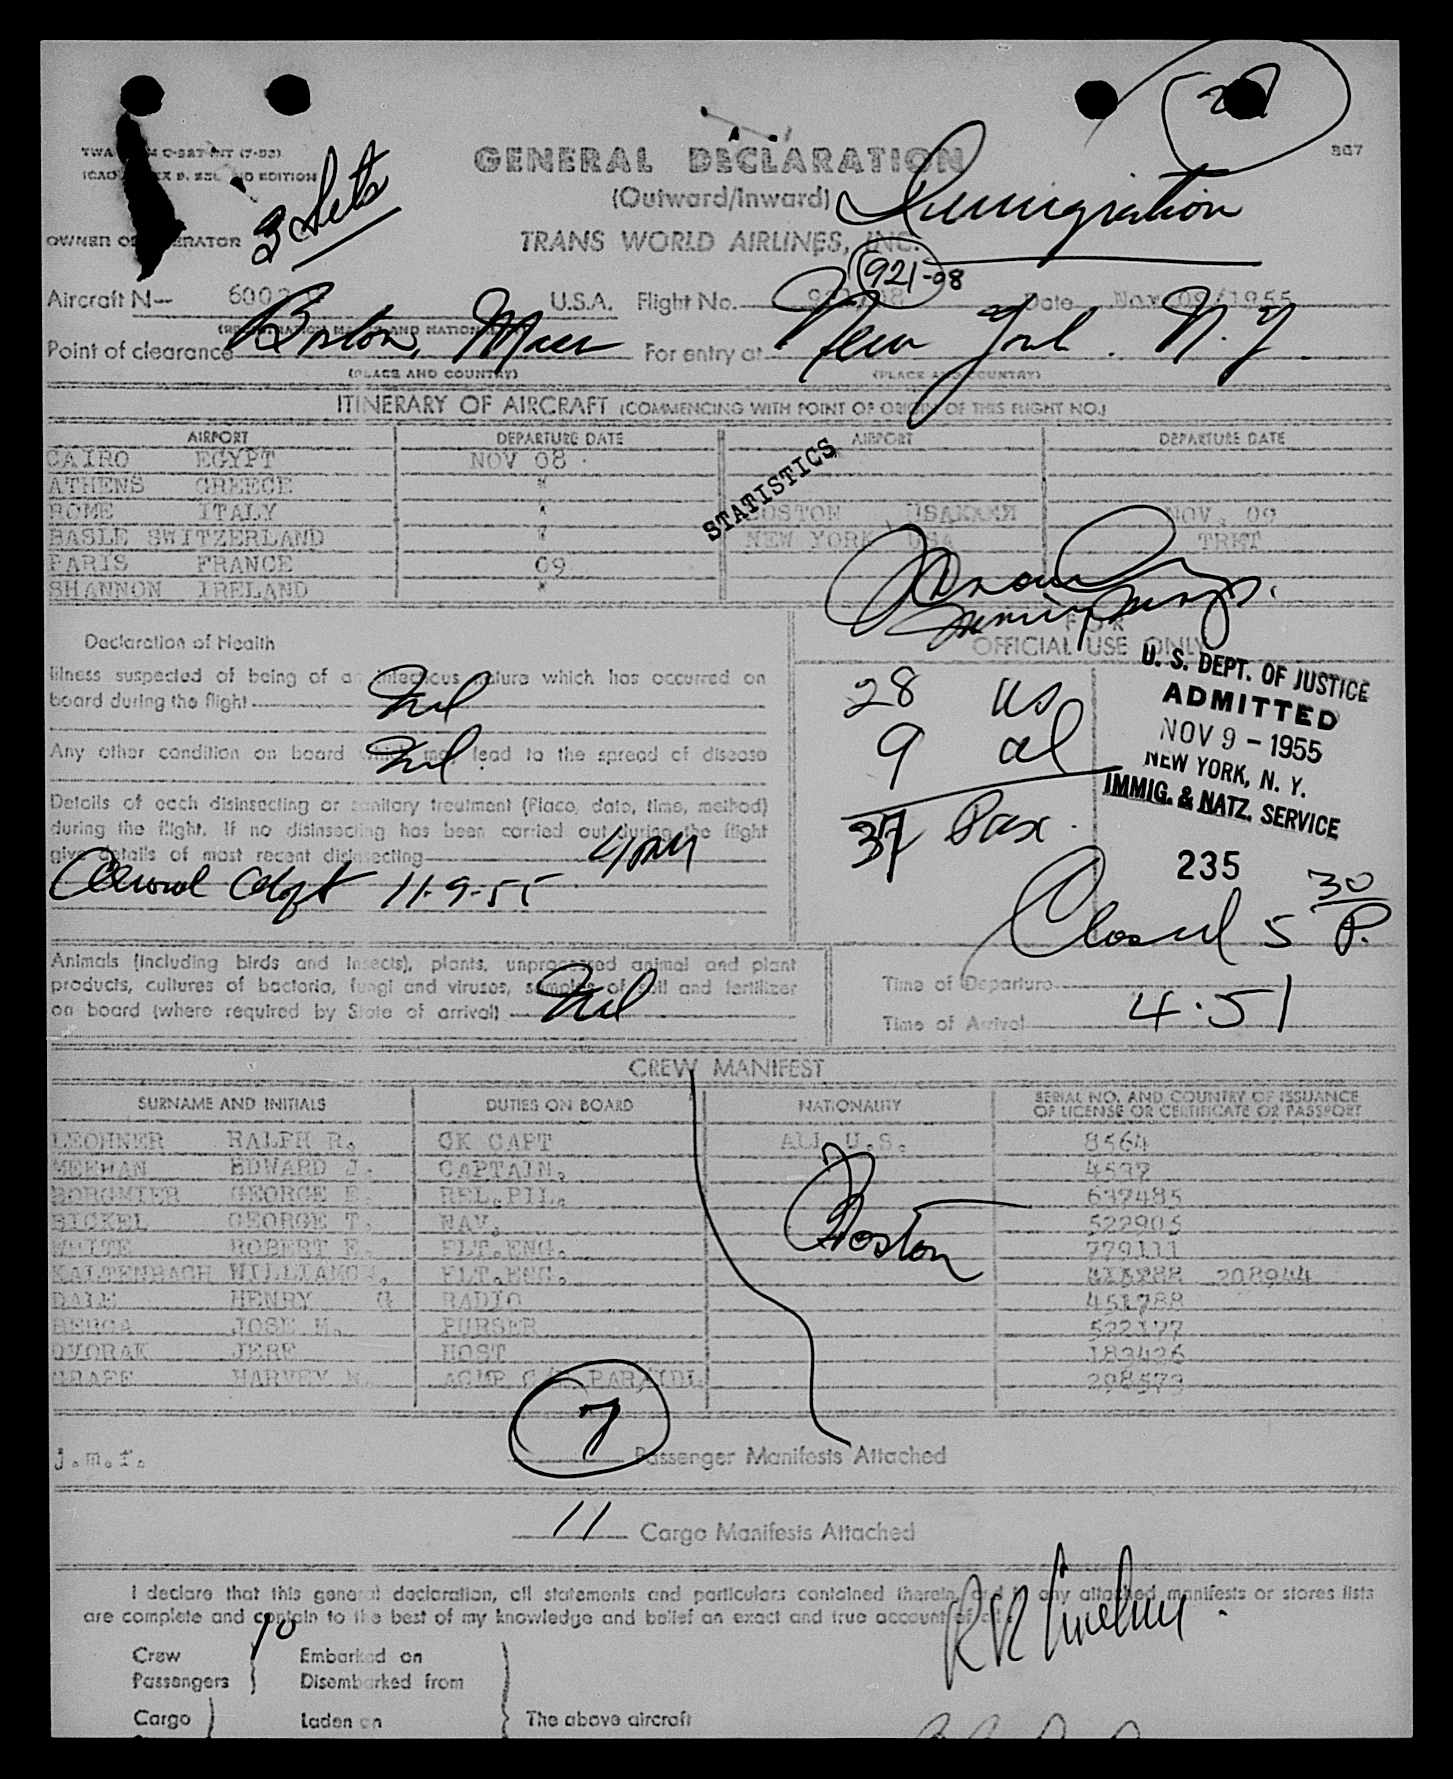 GENERAL DECLARATION
(Outward/Inward)
Immigration
3 Sets
867
TRANS WORLD AIRLINES, INC.
Aircraft N— U.S.A. Flight No. 921-08 Date Nov 09/1955
Point of clearance Boston, Mass For entry at New York. N.Y.
(PLACE AND COUNTRY) (PLACE AND COUNTRY)
ITINERARY OF AIRCRAFT (COMMENCING WITH POINT OF ORIGIN OF THIS FLIGHT NO.)
AIRPORT DEPARTURE DATE AIRPORT DEPARTURE DATE
CAIRO EGYPT NOV 08
ATHENS GREECE "
STATISTICS
ROME ITALY " BOSTON NOV. 09
BASLE SWITZERLAND " NEW YORK USA TRMT
PARIS FRANCE 09
SHANNON IRELAND "
FOR
OFFICIAL USE ONLY
Declaration of Health
Illness suspected of being of an infectious nature which has occurred on
board during the flight Nil
Any other condition on board which may lead to the spread of disease
Nil
Details of each disinsecting or sanitary treatment (Place, date, time, method)
during the flight. If no disinsecting has been carried out during the flight
give details of most recent disinsecting
11-9-55
28 US
9 al
37 Pax.
U. S. DEPT. OF JUSTICE
ADMITTED
NOV 9 - 1955
NEW YORK, N. Y.
IMMIG. & NATZ. SERVICE
235
Closed 5 30 P.
Animals (including birds and insects), plants, unprocessed animal and plant
products, cultures of bacteria, fungi and viruses, samples of soil and fertilizer
on board (where required by State of arrival) Nil
Time of Departure
Time of Arrival 4.51
CREW MANIFEST
SURNAME AND INITIALS DUTIES ON BOARD NATIONALITY SERIAL NO. AND COUNTRY OF ISSUANCE
OF LICENSE OR CERTIFICATE OR PASSPORT
LEOHNER RALPH R. CK CAPT ALL U.S. 8564
MEEHAN EDWARD J. CAPTAIN. 4537
BORGMIER GEORGE E. REL.PIL. 637485
BICKEL GEORGE T. NAV. 522905
WHITE ROBERT E. FLT.ENG. 779111
KALTENBACH FLT.ENG. 208944
DALE HENRY G RADIO 451788
BERGA JOSE M. PURSER 522177
DVORAK JERE HOST 183426
GRAFF HARVEY 298573
Boston
j.m.f.
7 Passenger Manifests Attached
11 Cargo Manifests Attached
I declare that this general declaration, all statements and particulars contained therein and in any attached manifests or stores lists
are complete and contain to the best of my knowledge and belief an exact and true account of all
Crew Embarked on
Passengers Disembarked from
Cargo Laden on The above aircraft